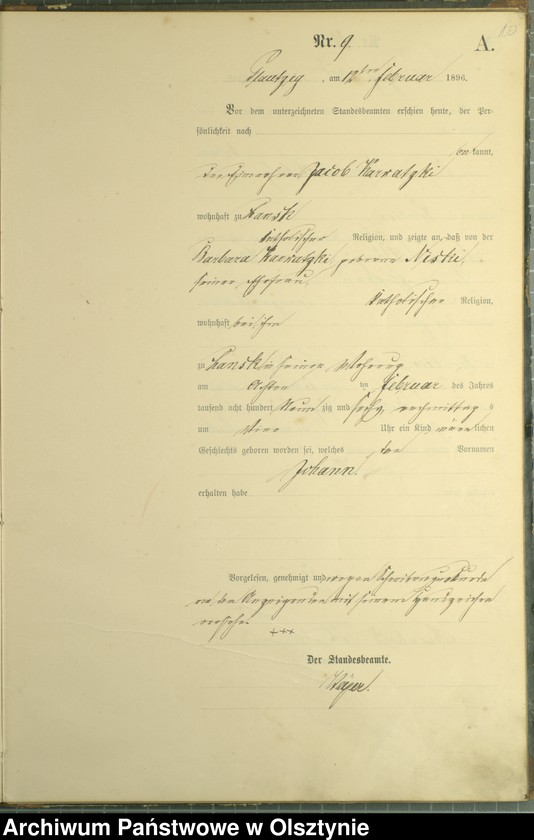 Nr. 9
A.
am 12ten Februar 1896.
Vor dem unterzeichneten Standesbeamten erschien heute, der Per-
sönlichkeit nach
kannt,
Jacob Karratzki
wohnhaft zu Lansk
katholischer Religion, und zeigte an, daß von der
Barbara Karratzki, geborene Niski,
seiner Ehefrau
katholischer Religion,
wohnhaft bei ihm
zu Lansk in seiner Wohnung
am Achten ten Februar des Jahres
tausend acht hundert Neunzig und sechs, nachmittag s
um Uhr ein Kind männlichen
Geschlechts geboren worden sei, welches den Vornamen
Johann.
erhalten habe
Vorgelesen, genehmigt und wegen Schreibensunkunde
von dem Anzeigenden mit seinem Handzeichen
versehen.
+++
Der Standesbeamte.
Archiwum Państwowe w Olsztynie